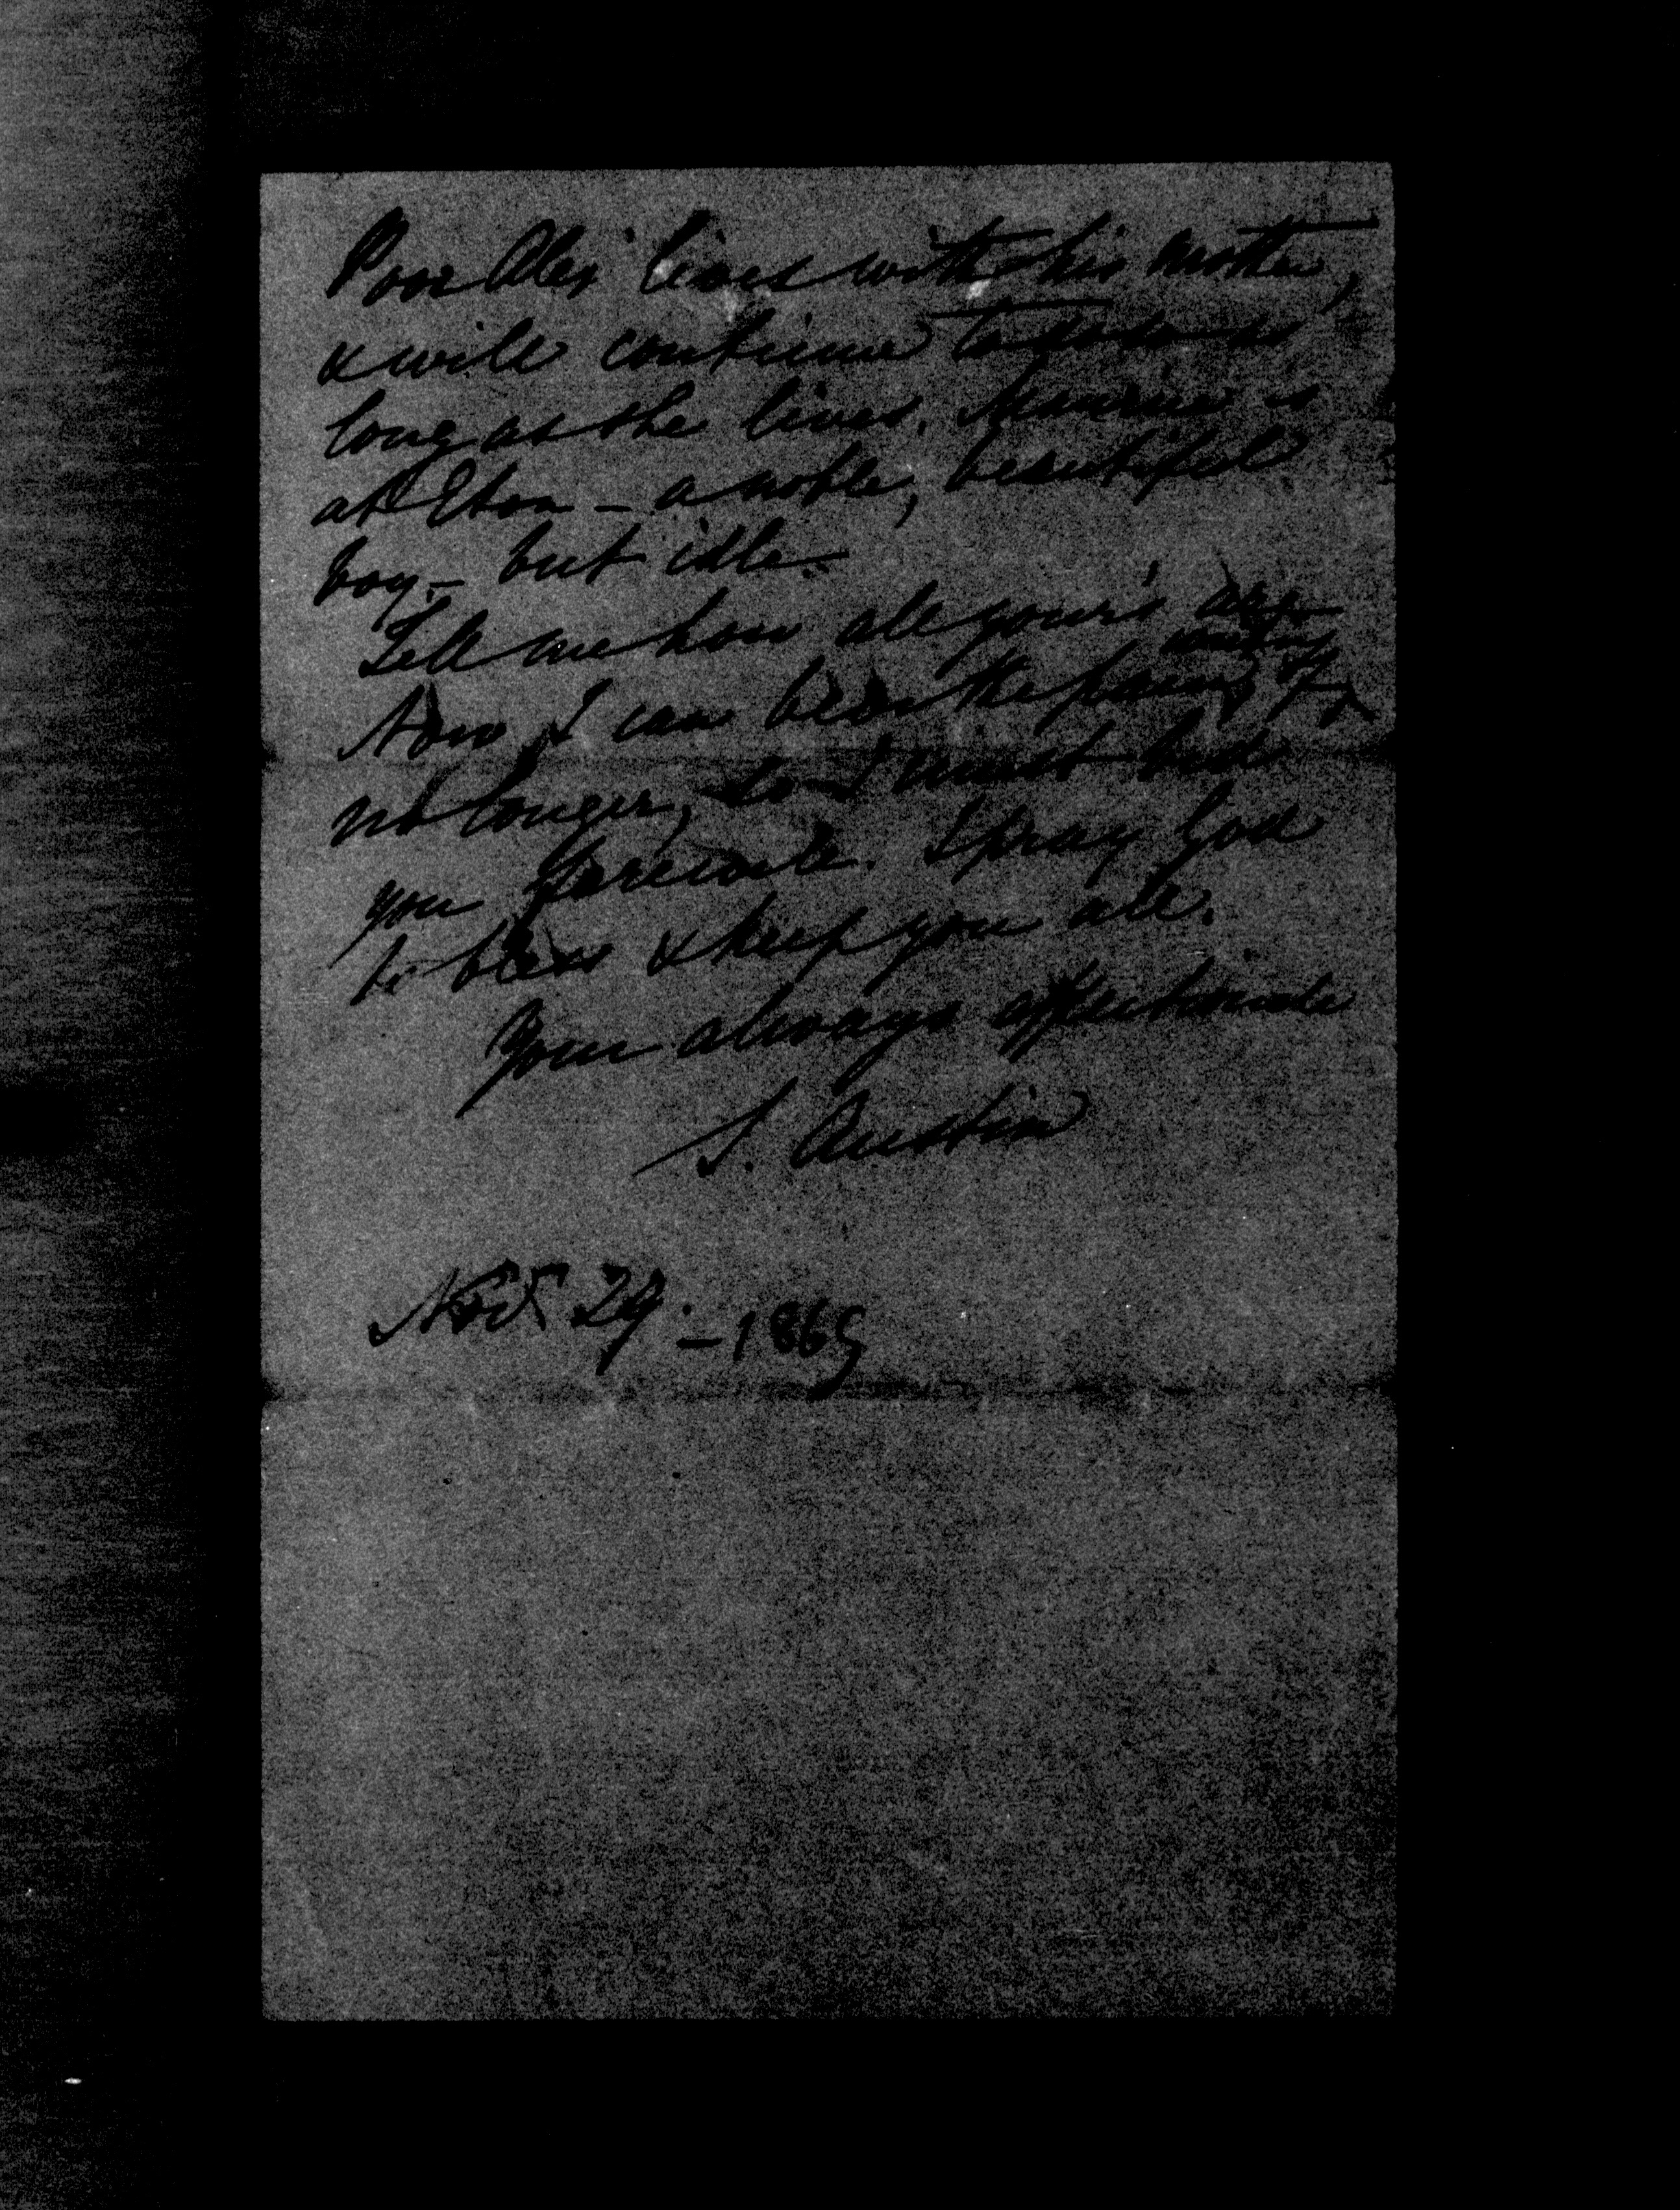 Poor Alex lives with his mother,
& will continue to do so as
long as she lives. Maurice is
at Eton - a noble, beautiful
boy - but idle.
Tell me how all yours are
Now I can bear the pain of writing
no longer, so I must bid
you farewell. I pray God
to bless & keep you all.
Your always affectionate
S. Austin
Novr 29 - 1865